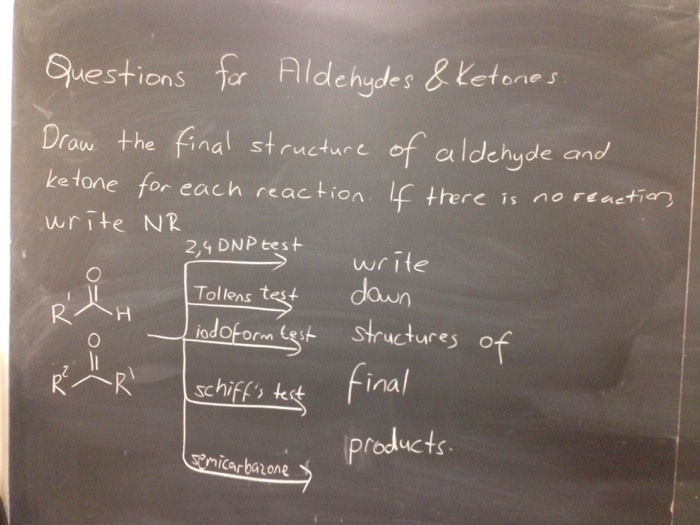 Questions for Aldehydes & Ketones.
Draw the final structure of aldehyde and
ketone for each reaction. If there is no reaction,
write NR
2,4 DNP test
write
Tollens test
down
iodoform test
structures of
schiff's test
final
semicarbazone
products.
O
R'
H
O
R²
R'